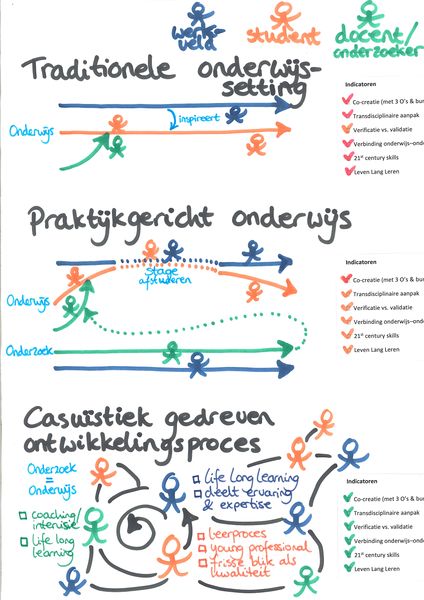 werk-
veld
student
docent/
onderzoeker
Traditionele onderwijs-
setting
Onderwijs
inspireert
Indicatoren
Co-creatie (met 3 O's & bu
Transdisciplinaire aanpak
Verificatie vs. validatie
Verbinding onderwijs–onde
21st century skills
Leven Lang Leren
Praktijkgericht onderwijs
stage
afstuderen
Onderwijs
Onderzoek
Indicatoren
Co-creatie (met 3 O's & bu
Transdisciplinaire aanpak
Verificatie vs. validatie
Verbinding onderwijs–onde
21st century skills
Leven Lang Leren
Casuïstiek gedreven
ontwikkelingsproces
Onderzoek
=
Onderwijs
coaching/
intervisie
life long
learning
life long learning
deelt ervaring
& expertise
leerproces
young professional
frisse blik als
kwaliteit
Indicatoren
Co-creatie (met 3 O's & bu
Transdisciplinaire aanpak
Verificatie vs. validatie
Verbinding onderwijs–onde
21st century skills
Leven Lang Leren